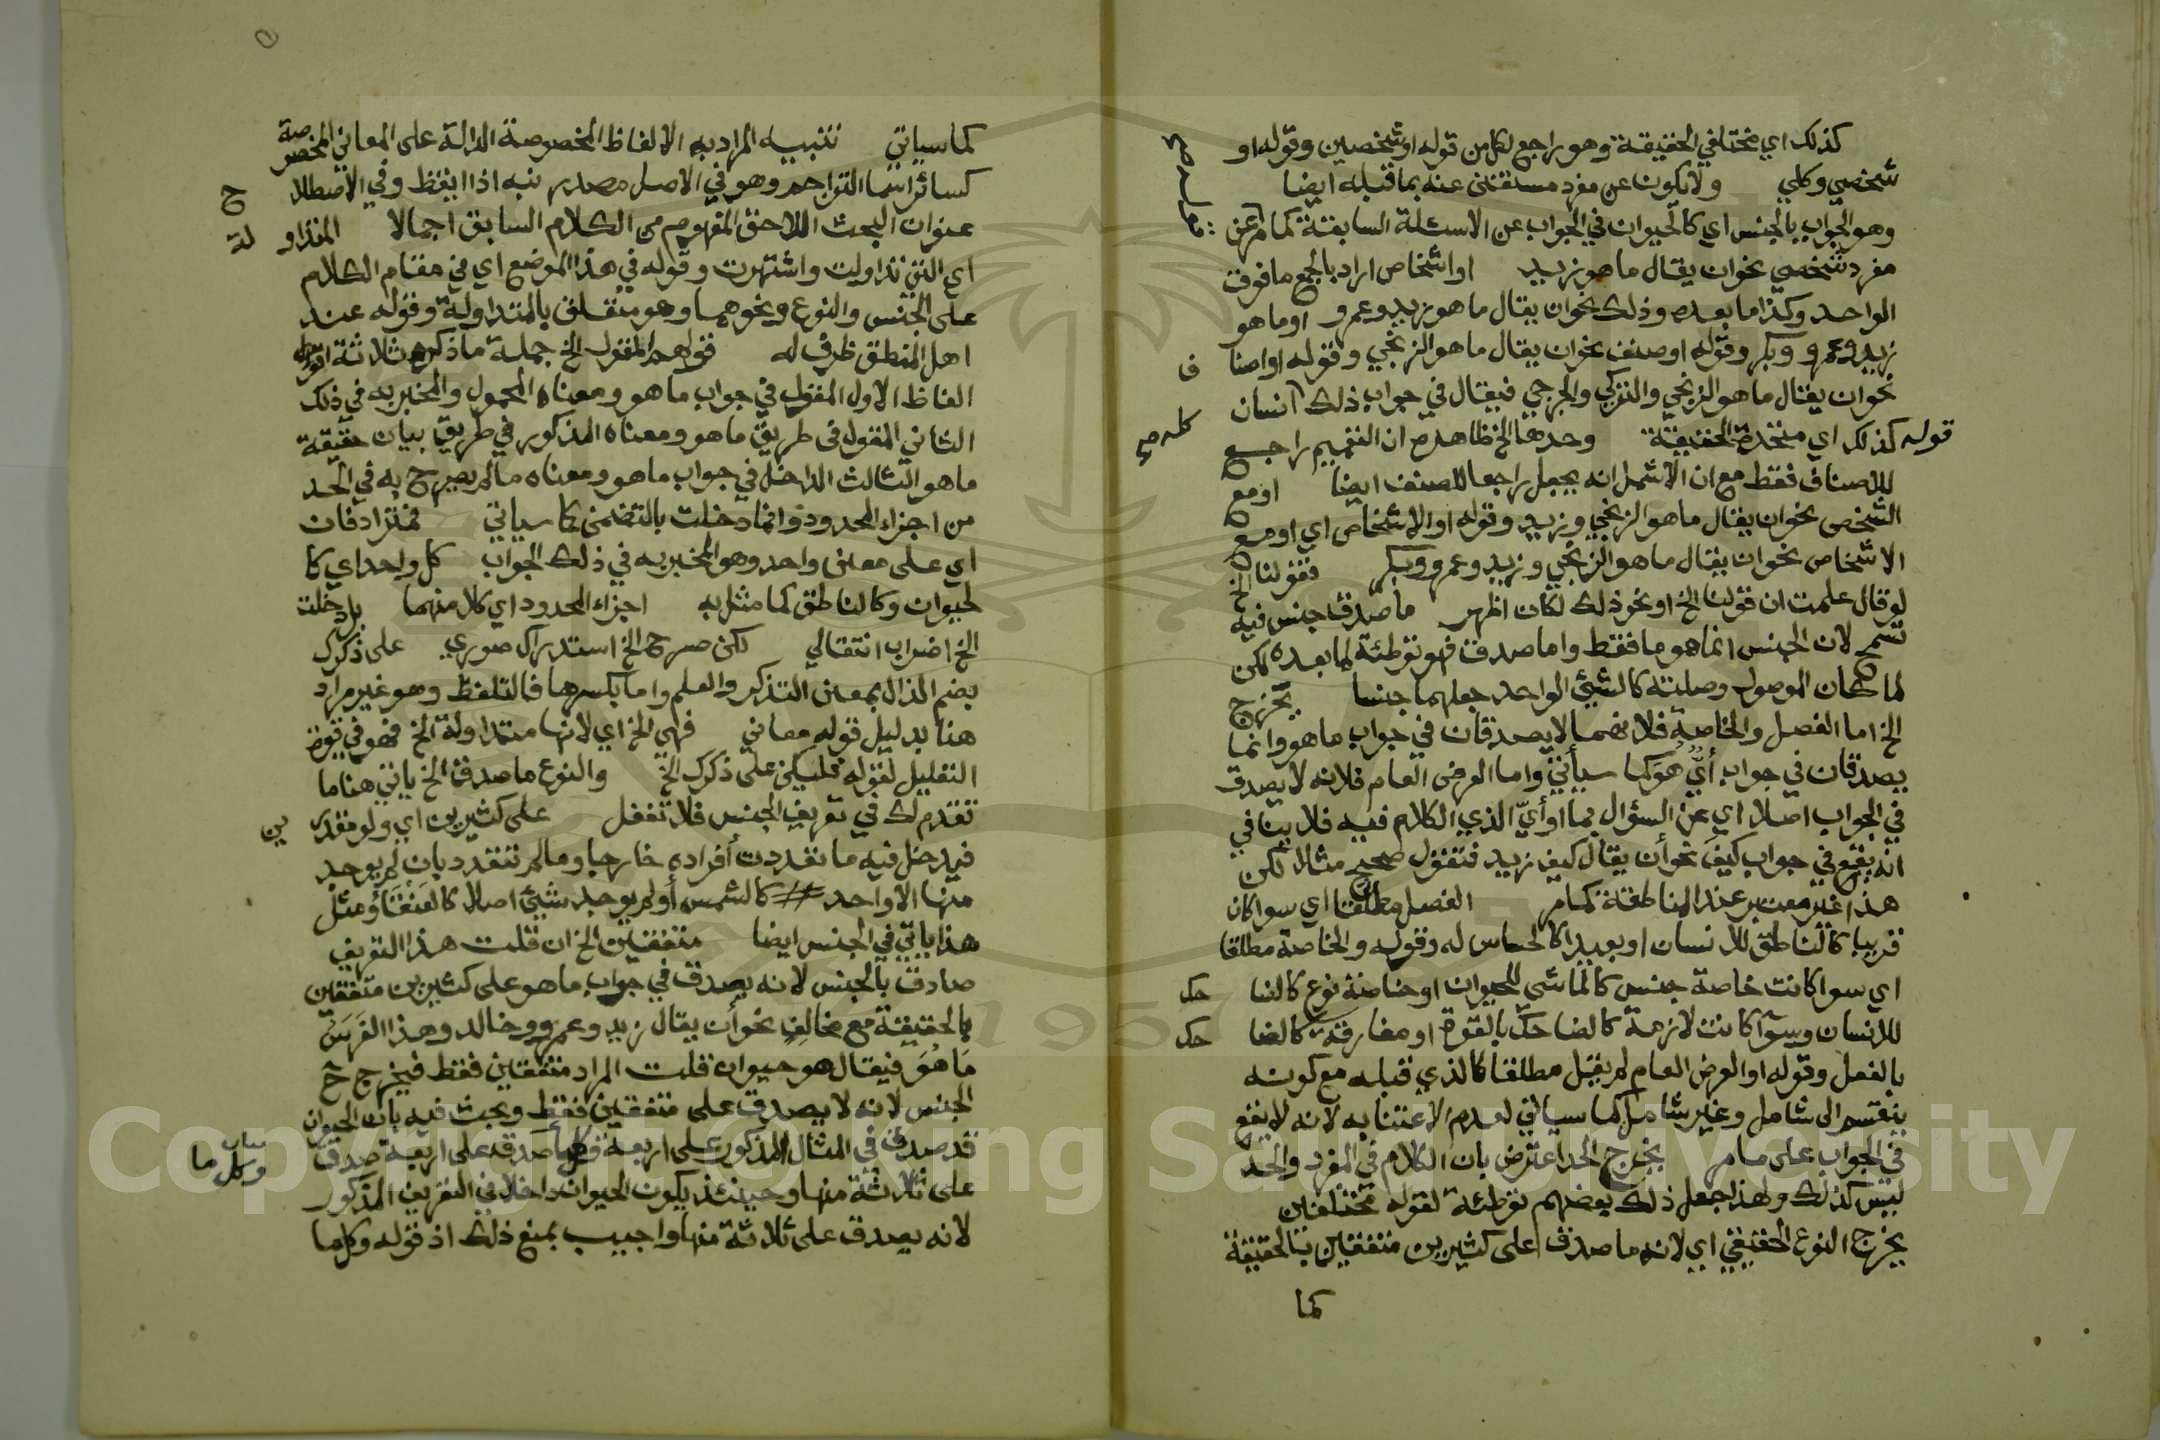 كذلك اي مختلفي الحقيقة وهو راجع لكل من قوله او شخصين وقوله او
شخصي وكلي ولا يكون عن مفرد مستغنى عنه بما قبله ايضا
وهو الجواب بالجنس اي كالحيوان في الجواب عن الاسئلة السابقة كما مر عن
مفرد شخصي نحو ان يقال ما هو زيد او اشخاص اراد بالجمع ما فوق
الواحد وكذا ما بعده وذلك نحو ان يقال ما هو زيد وعمرو او ما هو
زيد وعمرو وبكر وقوله او صنف نحو ان يقال ما هو الزنجي وقوله او اصنا ف
نحو ان يقال ما هو الزنجي والتركي والجرجي فيقال في جواب ذلك انسان
قوله كذلك اي متحدة الحقيقة وحدها الخ ظاهره ان التعميم راجع
للاصناف فقط مع ان الاشمل انه يجعل راجعا للصنف ايضا او مع
الشخص نحو ان يقال ما هو الزنجي وزيد وقوله او الاشخاص اي او مع
الاشخاص نحو ان يقال ما هو الزنجي وزيد وعمرو وبكر فقولنا الخ
لو قال علمت ان قولنا الخ او نحو ذلك لكان اظهر ما صدق جنس فيه
تسمح لان الجنس انما هو ما فقط واما صدق فهو توطئة لما بعده لكن
لما كان الموصول وصلته كالشيئ الواحد جعلهما جنسا يخرج
الخ اما الفصل والخاصة فلانهما لا يصدقان في جواب ما هو وانما
يصدقان في جواب أيٌّ هوَ كما سيأتي واما العرض العام فلانه لا يصدق
في الجواب اصلا اي عن السؤال بما او أيّ الذي الكلام فيه فلا ينافي
انه يقع في جواب كيف نحو أن يقال كيف زيد فتقول صحيح مثلا لكن
هذا غير معتبر عند المناطقة كما مر الفصل مطلقا اي سوا كان
قريبا كالناطق للانسان او بعيدا كالحساس له وقوله والخاصة مطلقا
اي سوا كانت خاصة جنس كالماشي للحيوان او خاصة نوع كالضا حك
للانسان وسوآ كانت لازمة كالضاحك بالقوة او مفارقة كالضا حك
بالفعل وقوله او العرض العام لم يقل مطلقا كالذي قبله مع كونه
ينقسم الى شامل وغير شامل كما سياتي لعدم الاعتنا به لانه لا يقع
في الجواب على ما مر يخرج الحد اعترض بان الكلام في المفرد والحد
ليس كذلك ولهذا جعل ذلك بعضهم توطئة لقوله مختلفين
يخرج النوع الحقيقي اي لانه ما صدق على كثيرين متفقين بالحقيقة
كما
كما سياتي تنبيه المراد به الالفاظ المخصوصة الدالة على المعاني المخصوصة
كسائر اسما التراجم وهو في الاصل مصدر نبه اذا ايقظ وفي الاصطلا ح
عنوان البحث اللاحق المفهوم من الكلام السابق اجمالا المتداو لة
اي التي تداولت واشتهرت وقوله في هذا الموضع اي في مقام الكلام
على الجنس والنوع ونحوهما وهو متعلق بالمتداولة وقوله عند
اهل المنطق ظرف له قولهم المقول الخ جملة ما ذكره ثلاثة
الفاظ الاول المقول في جواب ما هو ومعناه المحمول والمخبر به في ذلك
الثاني المقول في طريق ما هو ومعناه المذكور في طريق بيان حقيقة
ما هو الثالث الداخل في جواب ما هو ومعناه ما لم يصرح به في الحد
من اجزاء المحدود وانما دخلت بالتضمن كما سياتي فمترادفان
اي على معنى واحد وهو المخبر به في ذلك الجواب كل واحد اي كا
لحيوان وكالناطق كما مثل به اجزاء المحدود اي كلا منهما بل دخلت
الخ اضراب انتقالي لكن صرح الخ استدراك صوري على ذكرك
بضم الذال بمعنى التذكر والعلم واما بكسرها فالتلفظ وهو غير مراد
هنا بدليل قوله معاني فهي الخ اي لانها متداولة الخ فهو في قوة
التعليل لقوله فليكن على ذكرك الخ والنوع ما صدق الخ ياتي هنا ما
تقدم لك في تعريف الجنس فلا تغفل على كثيرين اي ولو مقدر ين
فيدخل فيه ما تعددت أفراده خارجا وما لم تتعدد بان لم يوجد
منها الا واحد كالشمس أو لم يوجد شيئ اصلا كالعنقاء ومثل
هذا ياتي في الجنس ايضا متفقين الخ ان قلت هذا التعريف
صادق بالجنس لانه يصدق في جواب ما هو على كثيرين متفقين
بالحقيقة مع مخالفٍ نحو أن يقال زيد وعمرو وخالد وهذا الفَرَسُ
مَا هُوَ فيقال هو حيوان قلت المراد متفقين فقط فيخرج ح
الجنس لانه لا يصدق على متفقين فقط وبحث فيه بان الحيوان
قد صدق في المثال المذكور على اربعة وكل ما صدق على اربعة صدق
على ثلاثة منها وحينئذ يكون الحيوان داخلا في التعريف المذكور
لانه يصدق على ثلاثة منها واجيب بمنع ذلك اذ قوله وكل ما
بيان
وكل ما
Copyright © King Saud University
1957